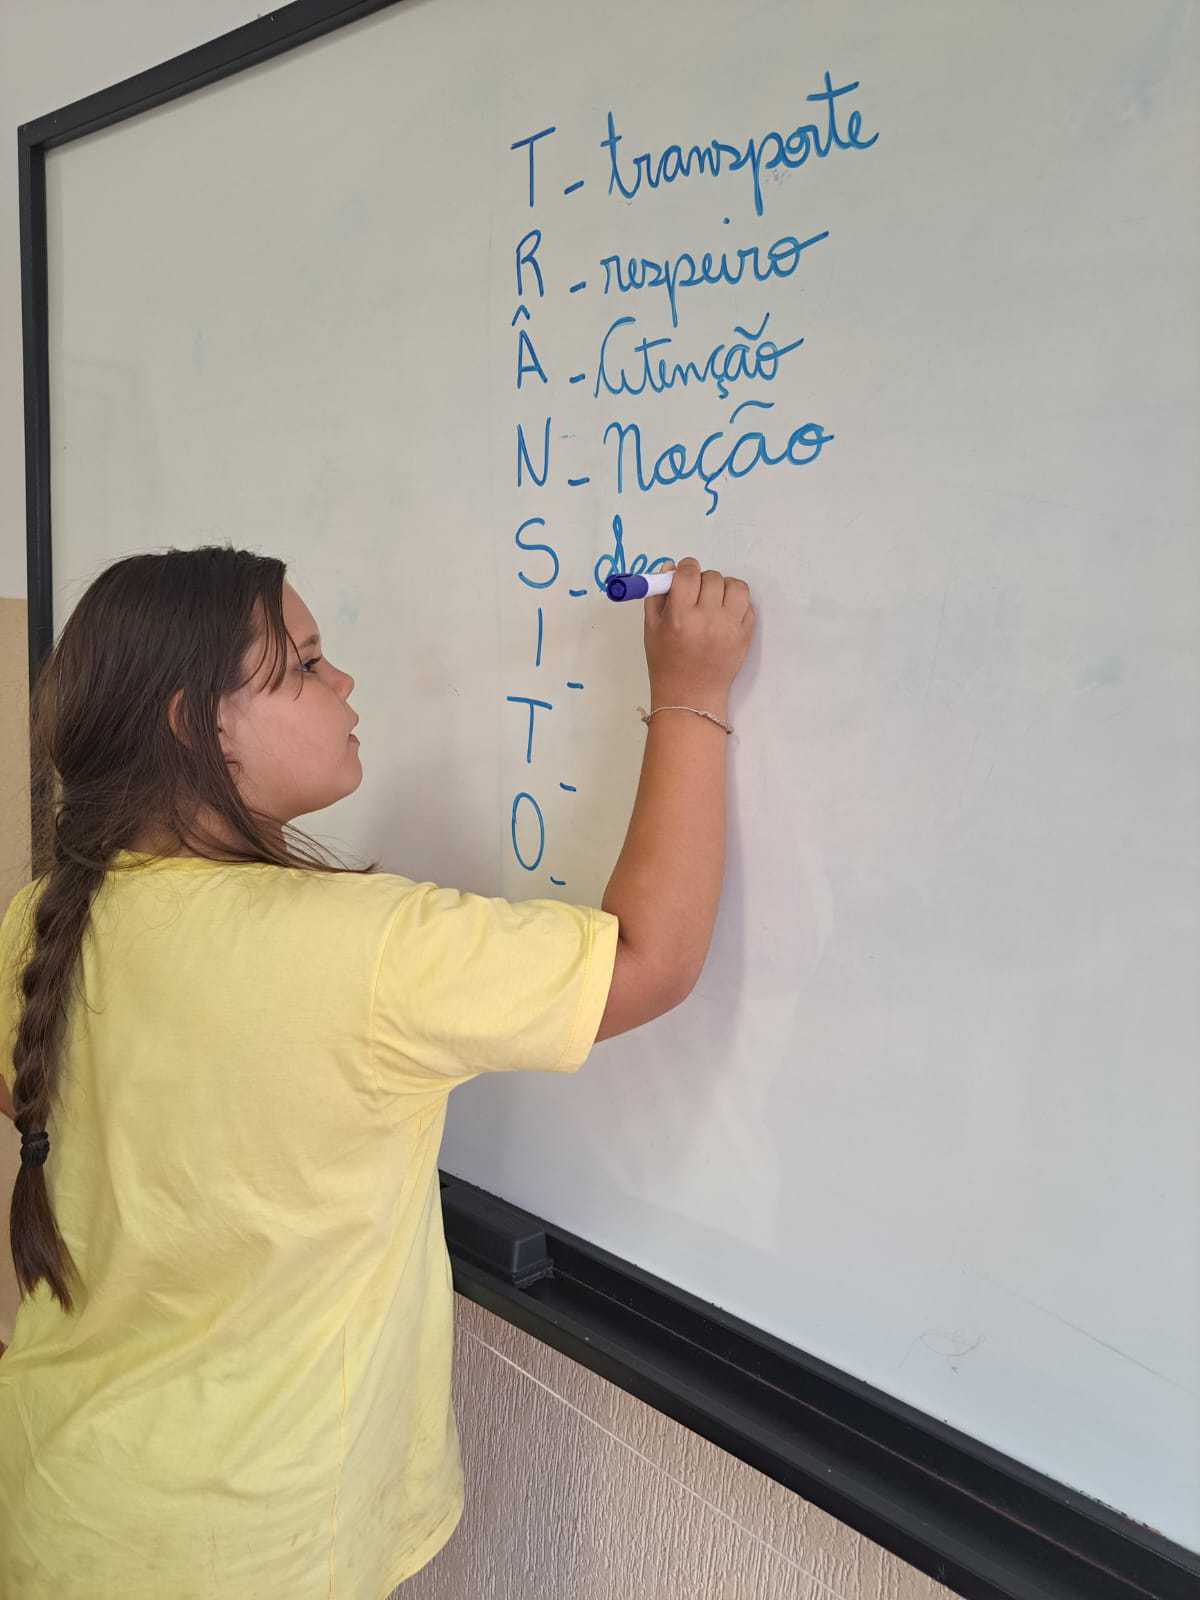 T - transporte
R - respeiro
Â - Atenção
N - Noção
S -
I -
T -
O -